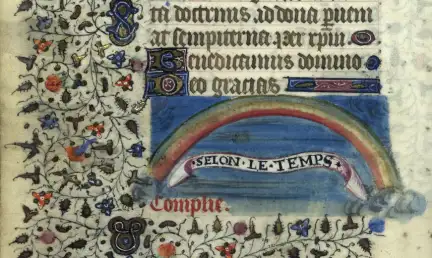 cta doctrinis ad dona perueni
at sempiterna. Per xp̄m.
Benedicamus domino
Deo gracias
·SELON·LE·TEMPS·
Complie.